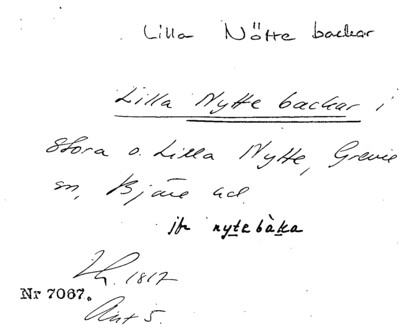 Lilla Nötte backar
Lilla Nytte backar i
Stora o. Lilla Nytte, Grevie
sn, Bjäre hd.
jfr nytebàka
1817
Nr 7067.
Akt 5.